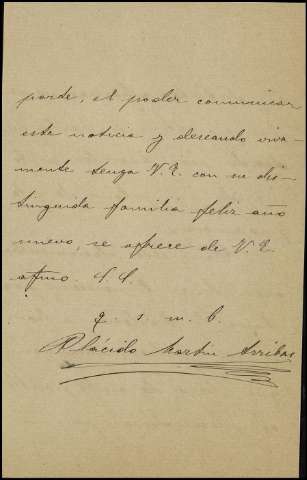 parde, al poder comunicar
esta noticia y deseando viva-
mente tenga V. E. con su dis-
tinguida familia feliz año
nuevo, se ofrece de V. E.
afmo S. S.
q. s. m. b.
Plácido Martín Arribas